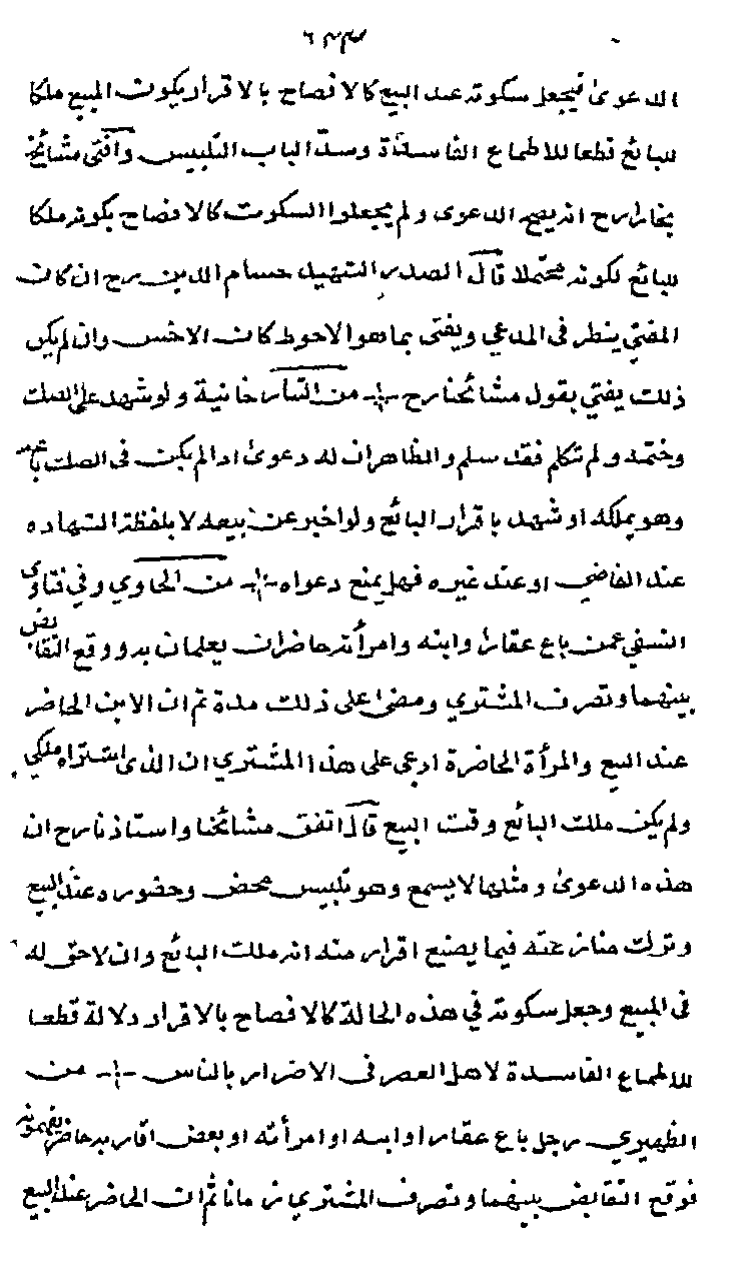 الدعوى فيجعل سكوته عند البيع كالافصاح بالاقرار بكون المبيع ملكا
للبائع قطعا للاطماع الفاسدة وسد الباب التلبيس وافتى مشائخ
بخارا رح انه يصح الدعوى ولم يجعلوا السكوت كالافصاح بكونه ملكا
للبائع لكونه محتملا قال الصدر الشهيد حسام الدين رح ان كان
المفتي ينظر في المدعي ويفتى بما هو الاحوط كان الاحسن وان لم يكن
ذلك يفتي بقول مشائخنا رح من التاتارخانية ولو شهد على الصك
وختمه ولم يتكلم فقد سلم والظاهر ان له دعوى اذا لم يكن في الصك باعه
وهو يملكه او شهد باقرار البائع ولو اخبر عن بيعه لا بلفظة الشهاده
عند القاضي او عند غيره فهل يمنع دعواه من الحاوي وفي فتاوى
النسفي عمن باع عقارا وابنه وامرأته حاضران يعلمان به ووقع التقابض
بينهما وتصرف المشتري ومضى على ذلك مدة ثم ان الابن الحاضر
عند البيع والمرأة الحاضرة ادعى على هذا المشتري ان الذى اشتراه ملكي
ولم يكن ملك البائع وقت البيع قال اتفق مشائخنا واستاذنا رح ان
هذه الدعوى ومثلها لا يسمع وهو تلبيس محض وحضوره عند البيع
وترك منازعته فيما يصنع اقرار منه انه ملك البائع وان لا حق له
في المبيع وجعل سكوته في هذه الحالة كالافصاح بالاقرار دلالة قطعا
للاطماع الفاسدة لاهل العصر في الاضرار بالناس من
الظهيري رجل باع عقارا وابنه او امرأته او بعض اقاربه حاضر
فوقع التقابض بينهما وتصرف المشتري زمانا ثم ان الحاضر عند البيع